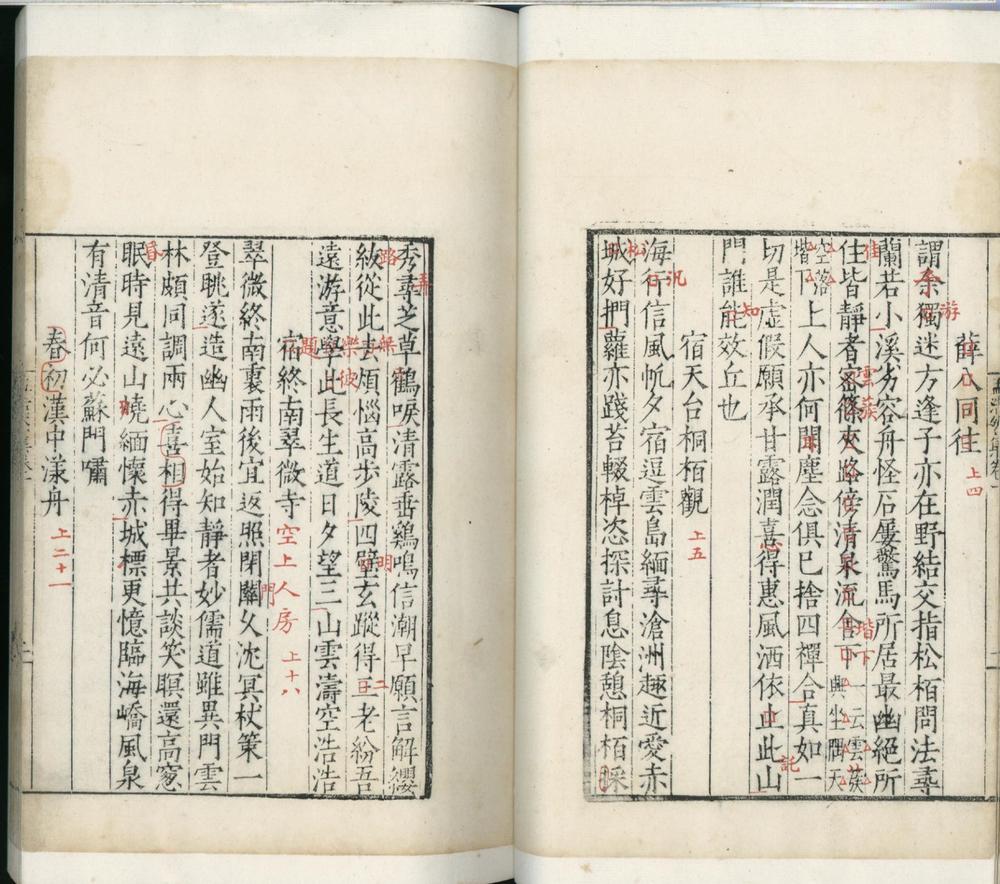 薛八同往
上四
謂余獨迷方逢子亦在野結交指松栢問法尋
蘭若小溪劣容舟怪石屢驚馬所居最幽絕所
住皆靜者密篠夾路傍清泉流舍下一云雲蔟興坐隅天
空落階下上人亦何聞塵念俱已捨四禪合真如一
切是虛假願承甘露潤喜得惠風洒依止此山
門誰能效丘也
宿天台桐栢觀
上五
海行信風帆夕宿逗雲島緬尋滄洲趣近愛赤
城好捫蘿亦踐苔輟棹恣探討息陰憩桐栢採
秀尋芝草鶴唳清露垂鷄鳴信潮早願言解纓
紱從此去煩惱高步陵四壁玄蹤得三老紛吾
遠游意學此長生道日夕望三山雲濤空浩浩
宿終南翠微寺
空上人房
上十八
翠微終南裏雨後宜返照閉關久沈冥杖策一
登眺遂造幽人室始知靜者妙儒道雖異門雲
林頗同調兩心喜相得畢景共談笑暝還高窓
眠時見遠山曉緬懷赤城標更憶臨海嶠風泉
有清音何必蘇門嘯
春初漢中漾舟
上二十一